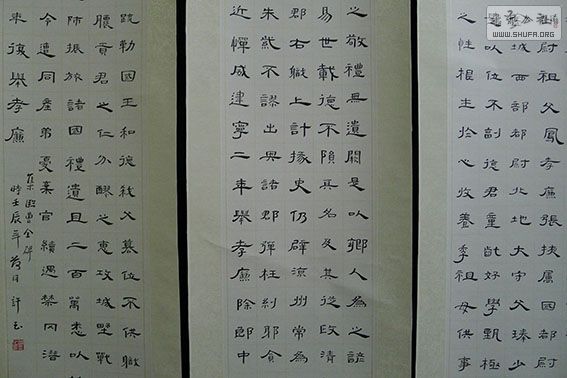 尉祖父鳳孝廉張掖屬國都尉
城西部都尉北地大守父琫少
以位不副德君童齔好學甄極
之性根生於心收養季祖母供事
之敬禮無遺闕是以鄉人為之諺
易世載德不隕其名及其從政清
郡右職上計掾史仍辟涼州常為
朱紫不謬出典諸郡彈枉糾邪貪
近憚威建寧二年舉孝廉除郎中
疏勒國王和德弒父篡位不供職
膿貢君之仁分醪之惠攻城野戰
師振旅諸國禮遺且二百萬悉以
令遭同產弟憂棄官續遇禁冈潛
復舉孝廉
曹全碑
時壬辰年
WWW.SHUFA.ORG